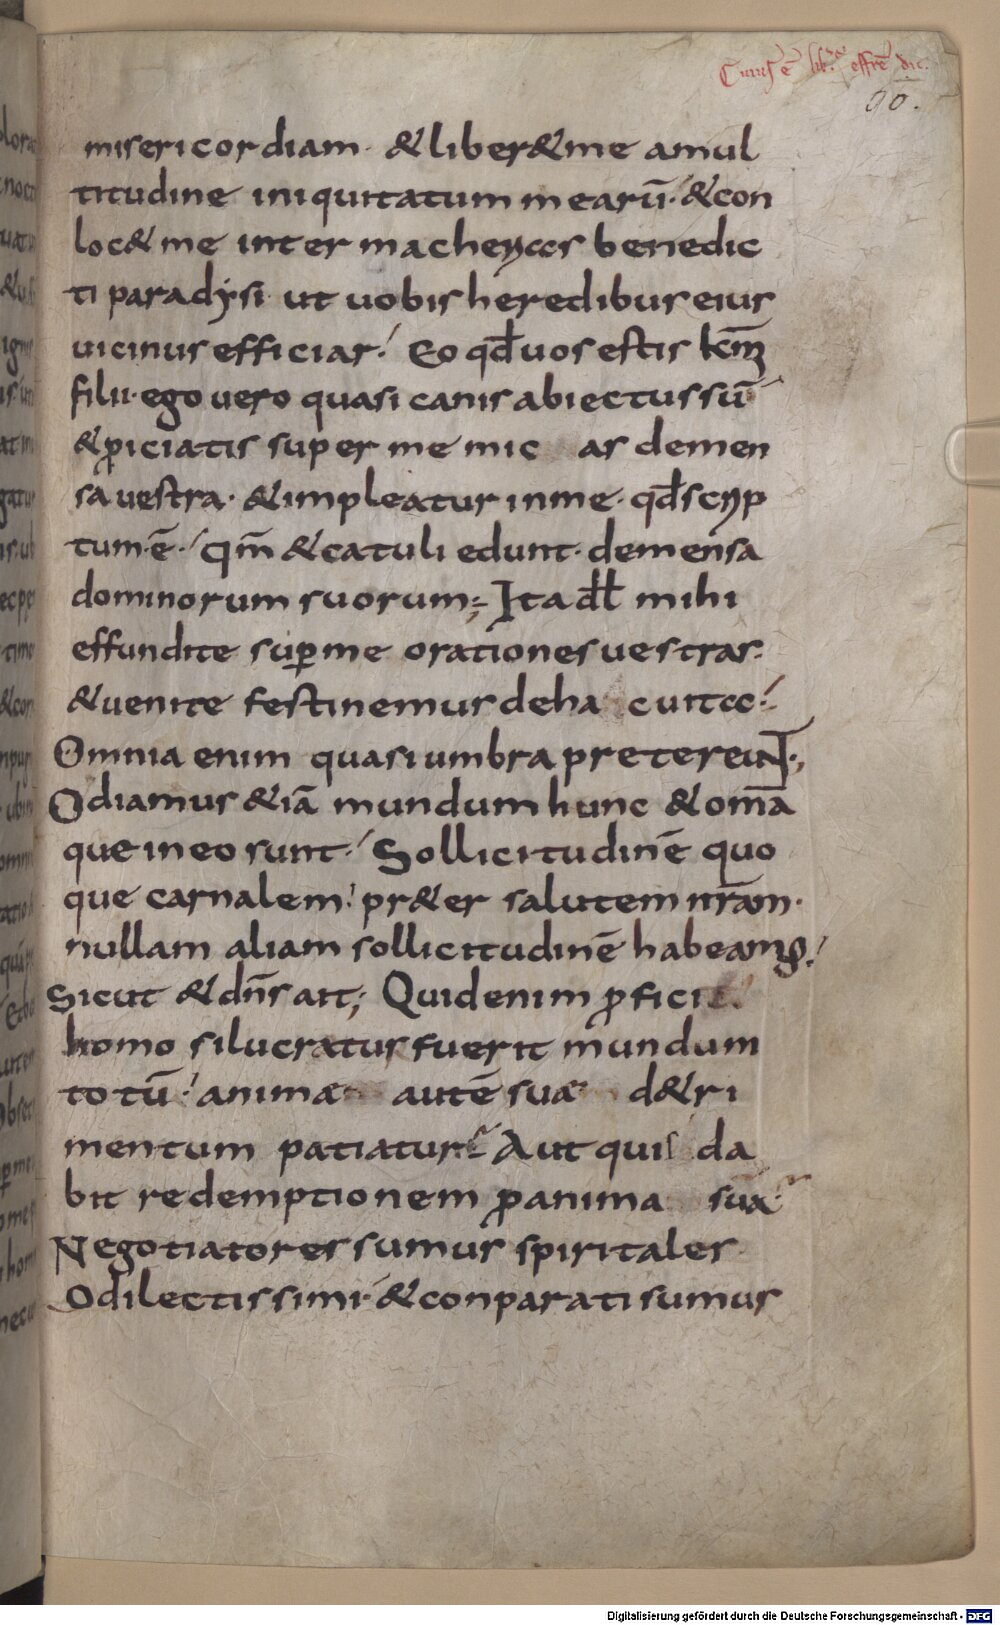 90.
misericordiam· & liber& me amul
titudine iniquitatum mearū· & con
loc& me inter macherias benedic
ti paradysi ut uobis heredibus eius
uicinus efficiar· Eo qđ uos estis km̄
filii· ego uero quasi canis abiectus sū
& ꝓiciatis super me mic as demen
sa uestra· & impleatur in me· qđ scrip
tum ē· qm̄ & catuli edunt· de mensa
dominorum suorum; Ita dƚ mihi
effundite suꝑ me orationes uestras·
& uenite festinemus de ha c uita·
Omnia enim quasi umbra pretereunt·,
Odiamus & iā mundum hunc & om̄a
que in eo sunt· Sollicitudinē quo
que carnalem· pr&er salutem nr̄am·
nullam aliam sollicitudinē habeamus·
Sicut & dn̄s ait; Quid enim ꝓficit·
homo si lucratus fuerit mundum
totū· animæ autē suæ d&ri
mentum patiatur· Aut quis da
bit redemptionem ꝓ anima sua·
Negotiatores sumus spiritales
O dilectissimi· & conparati sumus
Digitalisierung gefördert durch die Deutsche Forschungsgemeinschaft - DFG